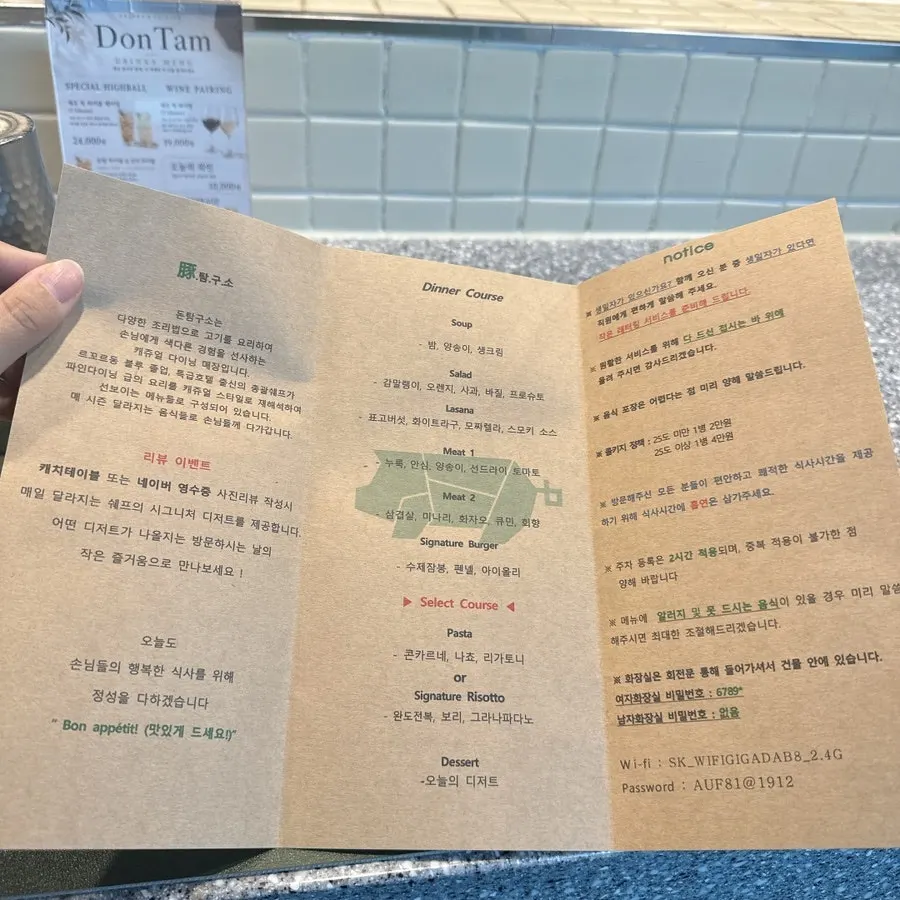 DonTam
DRINKS MENU
SPECIAL HIGHBALL
WINE PAIRING
24,000₩
39,000₩
豚.탐.구.소
돈탐구소는
다양한 조리법으로 고기를 요리하여
손님에게 색다른 경험을 선사하는
캐쥬얼 다이닝 매장입니다.
르꼬르동 블루 졸업, 특급호텔 출신의 총괄쉐프가
파인다이닝 급의 요리를 캐쥬얼 스타일로 재해석하여
선보이는 메뉴들로 구성되어 있습니다.
매 시즌 달라지는 음식들로 손님들께 다가갑니다.
리뷰 이벤트
캐치테이블 또는 네이버 영수증 사진리뷰 작성시
매일 달라지는 쉐프의 시그니처 디저트를 제공합니다.
어떤 디저트가 나올지는 방문하시는 날의
작은 즐거움으로 만나보세요 !
오늘도
손님들의 행복한 식사를 위해
정성을 다하겠습니다
" Bon appétit! (맛있게 드세요!)"
Dinner Course
Soup
- 밤, 양송이, 생크림
Salad
- 감말랭이, 오렌지, 사과, 바질, 프로슈토
Lasana
- 표고버섯, 화이트라구, 모짜렐라, 스모키 소스
Meat 1
- 누룩, 안심, 양송이, 선드라이 토마토
Meat 2
- 삼겹살, 미나리, 화자오, 큐민, 회향
Signature Burger
- 수제잠봉, 펜넬, 아이올리
▶ Select Course ◀
Pasta
- 콘카르네, 나쵸, 리가토니
or
Signature Risotto
- 완도전복, 보리, 그라나파다노
Dessert
-오늘의 디저트
notice
※ 생일자가 있으신가요? 함께 오신 분 중 생일자가 있다면
직원에게 편하게 말씀해 주세요.
작은 레터링 서비스를 준비해 드립니다.
※ 원활한 서비스를 위해 다 드신 접시는 바 위에
올려 주시면 감사드리겠습니다.
※ 음식 포장은 어렵다는 점 미리 양해 말씀드립니다.
※ 콜키지 정책 : 25도 미만 1병 2만원
25도 이상 1병 4만원
※ 방문해주신 모든 분들이 편안하고 쾌적한 식사시간을 제공
하기 위해 식사시간에 흡연은 삼가주세요.
※ 주차 등록은 2시간 적용되며, 중복 적용이 불가한 점
양해 바랍니다
※ 메뉴에 알러지 및 못 드시는 음식이 있을 경우 미리 말씀
해주시면 최대한 조절해드리겠습니다.
※ 화장실은 회전문 통해 들어가셔서 건물 안에 있습니다.
여자화장실 비밀번호 : 6789*
남자화장실 비밀번호 : 없음
Wi-fi : SK_WIFIGIGADAB8_2.4G
Password : AUF81@1912